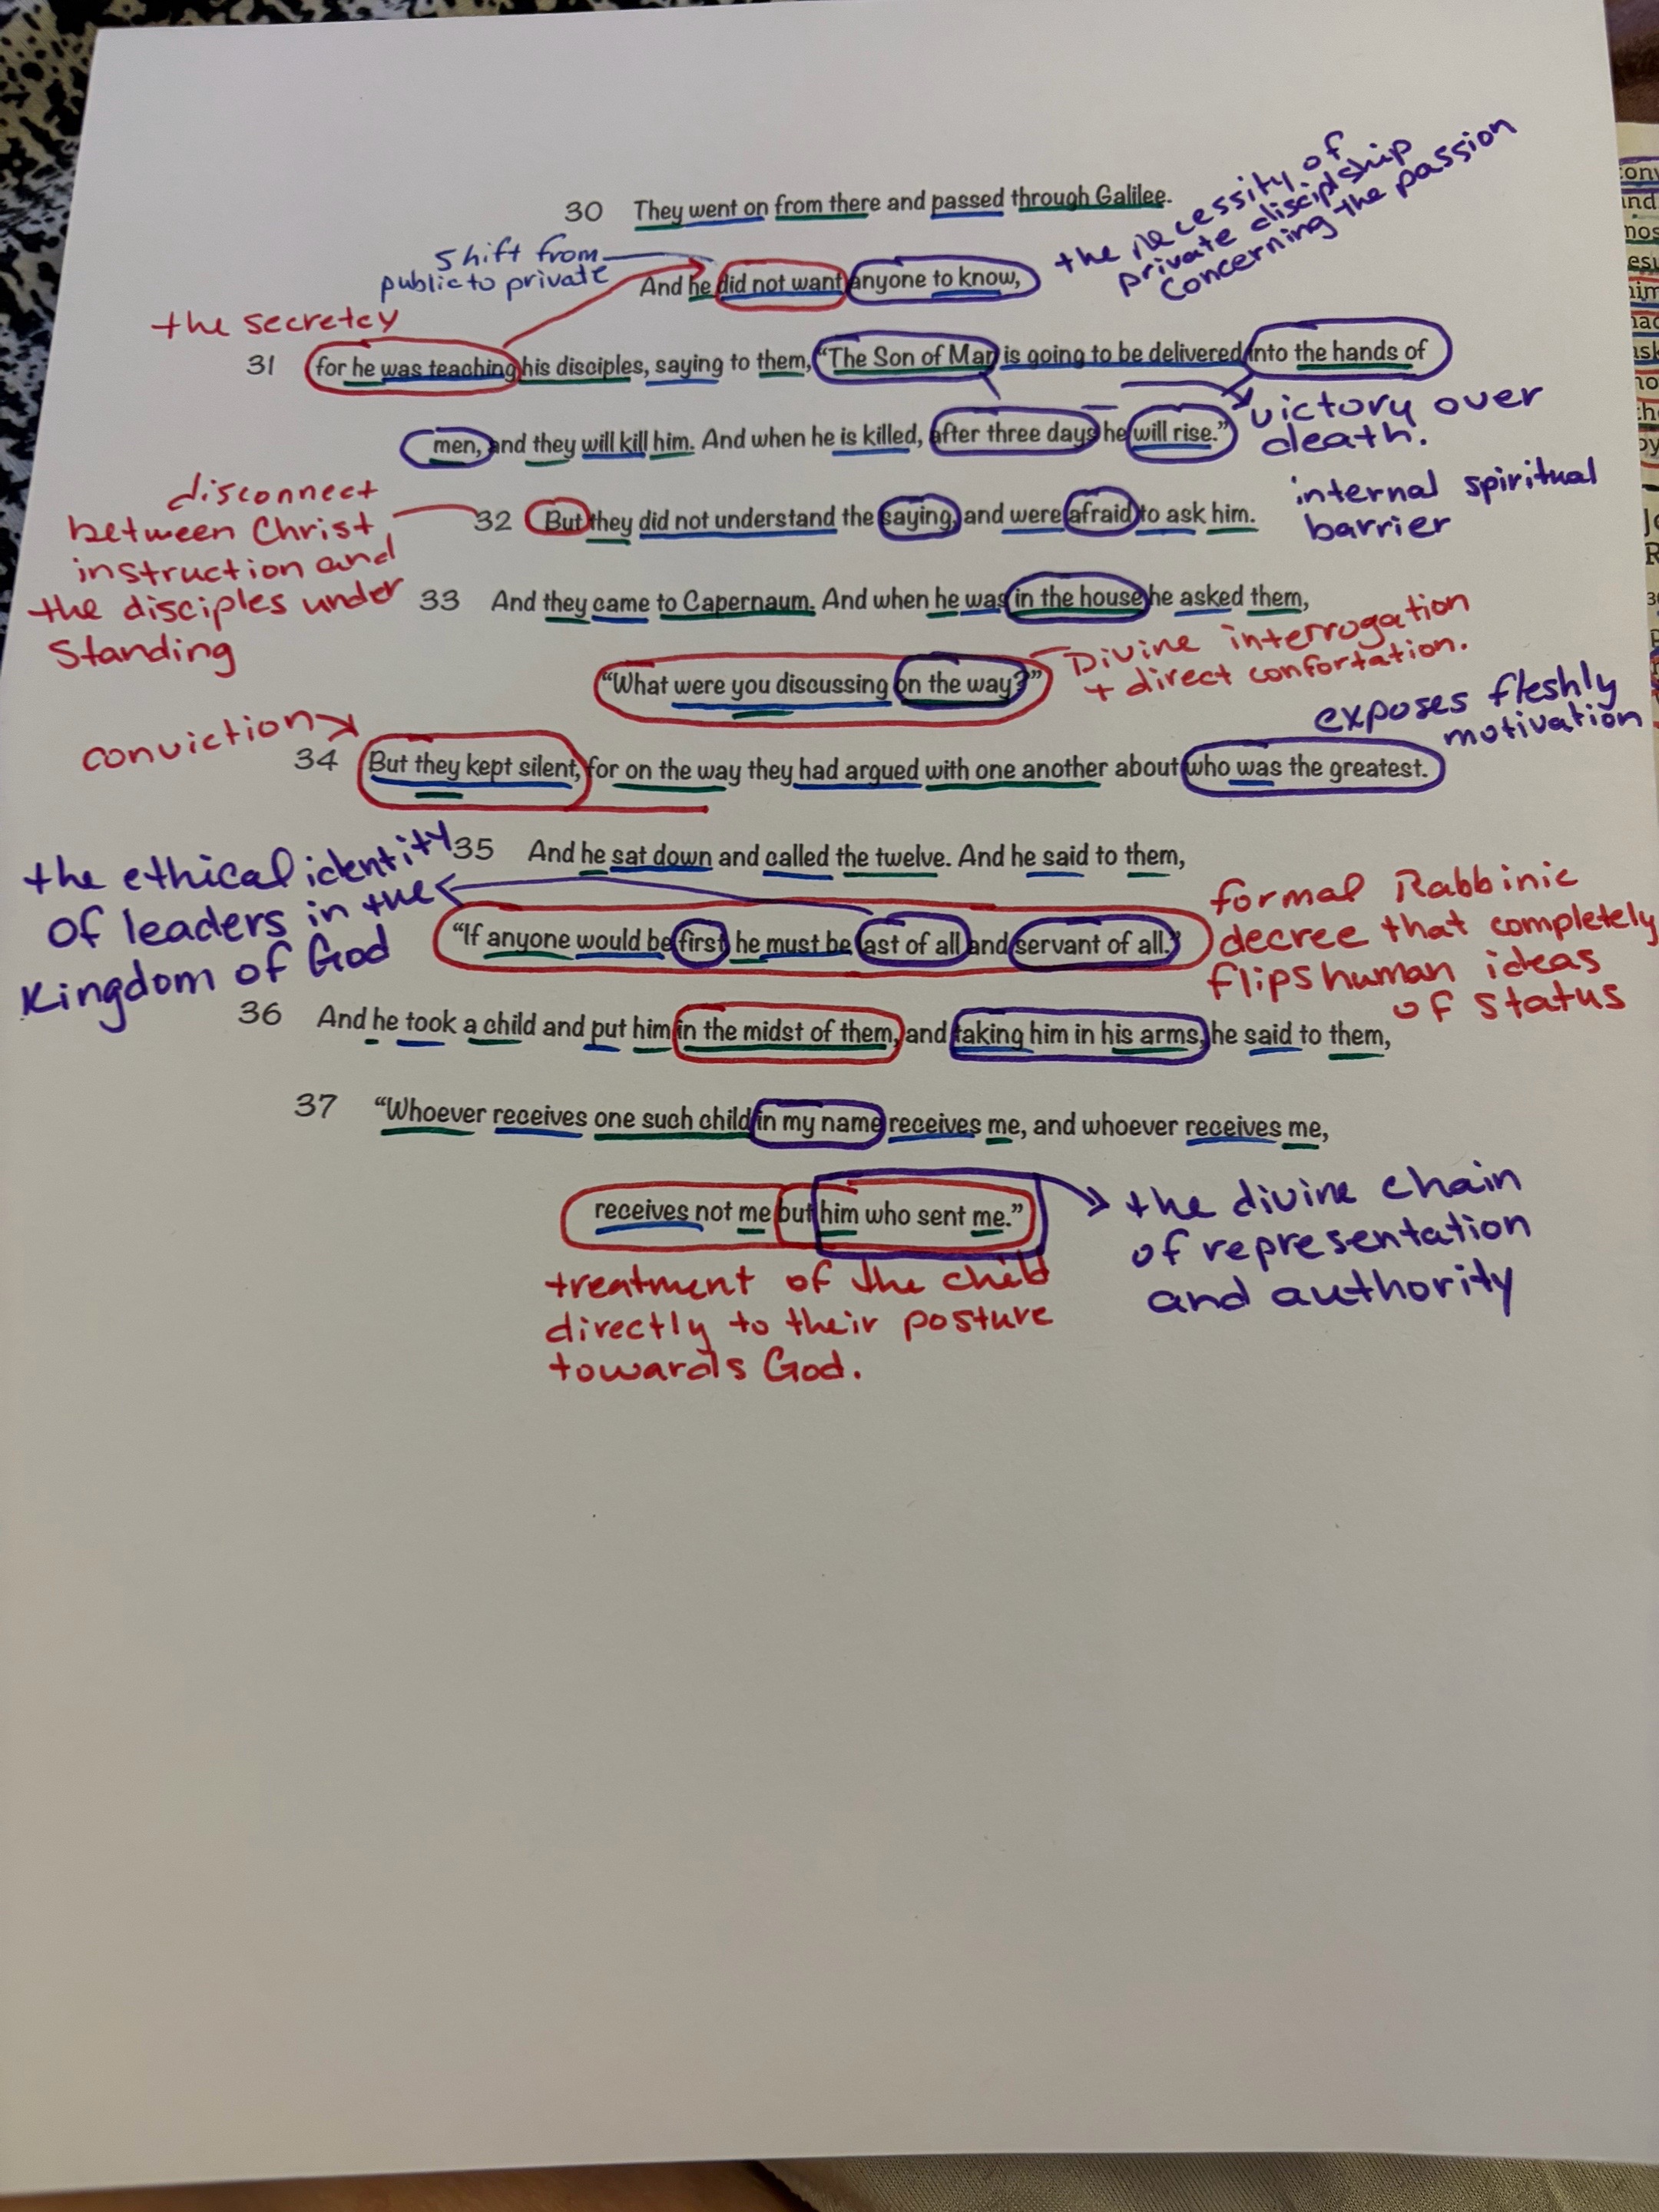 the necessity of
private disciplship
concerning the passion
30 They went on from there and passed through Galilee.
shift from
public to private
And he did not want anyone to know,
the secretcy
31 for he was teaching his disciples, saying to them, “The Son of Man is going to be delivered into the hands of
men, and they will kill him. And when he is killed, after three days he will rise.”
victory over
death.
disconnect
between Christ
instruction and
the disciples under
standing
32 But they did not understand the saying, and were afraid to ask him.
internal spiritual
barrier
33 And they came to Capernaum. And when he was in the house he asked them,
“What were you discussing on the way?”
Divine interrogation
+ direct confortation.
conviction
exposes fleshly
motivation
34 But they kept silent, for on the way they had argued with one another about who was the greatest.
35 And he sat down and called the twelve. And he said to them,
the ethical identity
of leaders in the
Kingdom of God
“If anyone would be first, he must be last of all and servant of all.”
formal Rabbinic
decree that completely
flips human ideas
of status
36 And he took a child and put him in the midst of them, and taking him in his arms, he said to them,
37 “Whoever receives one such child in my name receives me, and whoever receives me,
receives not me but him who sent me.”
the divine chain
of representation
and authority
treatment of the child
directly to their posture
towards God.